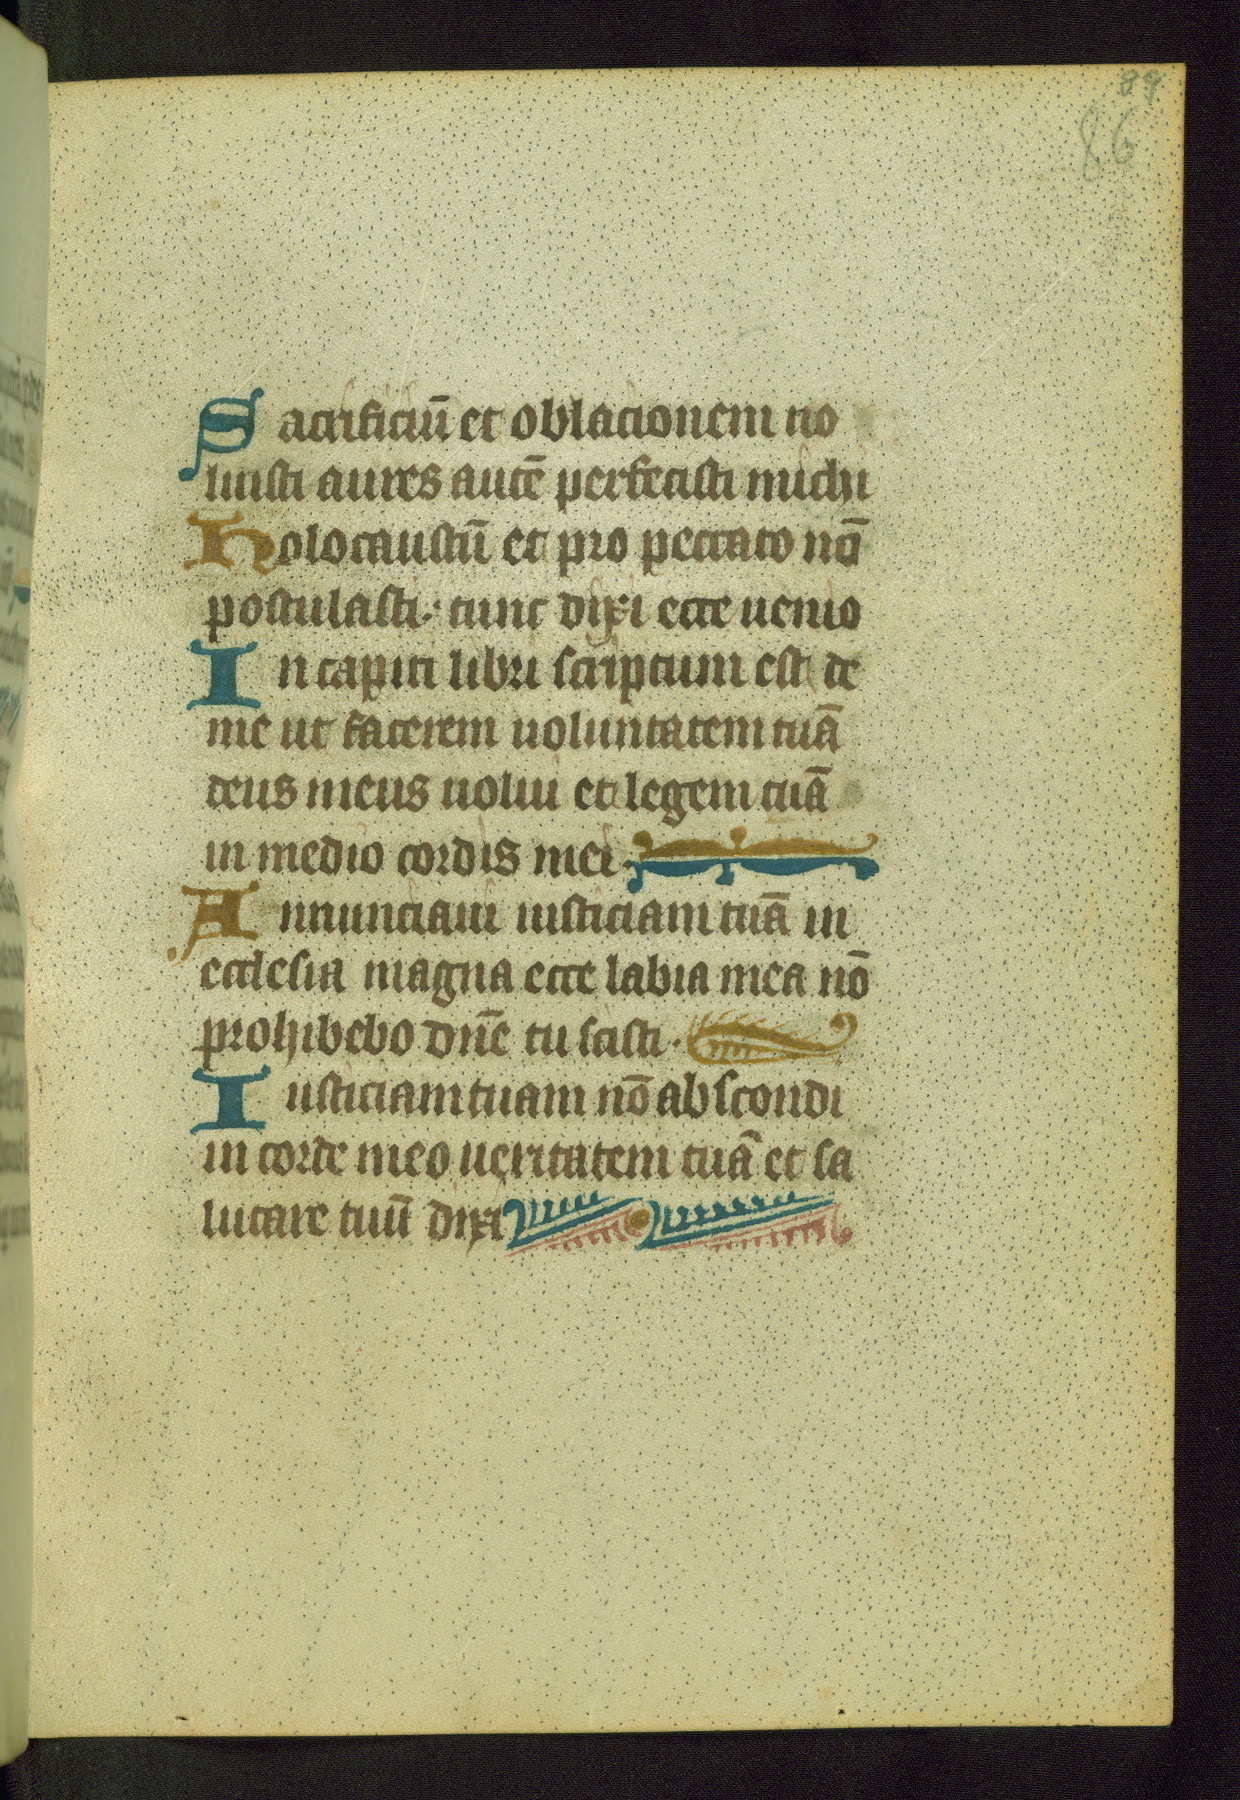 89
86
Sacrificiū et oblacionem no
luisti aures autē perfecisti michi
holocaustū et pro peccato nō
postulasti· tunc dixi ecce uenio
In capiti libri scriptum est de
me ut facerem uoluntatem tuā
deus meus uolui et legem tuā
in medio cordis mei·
Annunciaui iusticiam tuā in
ecclesia magna ecce labia mea nō
prohibebo dn̄e tu scisti·
Iusticiam tuam nō abscondi
in corde meo ueritatem tuā et sa
lutare tuū dixi